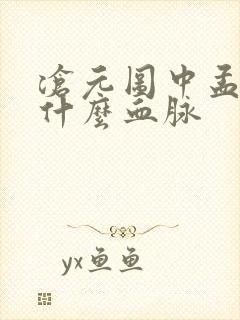 滄元圖中孟
什麼血脉
yx鱼鱼